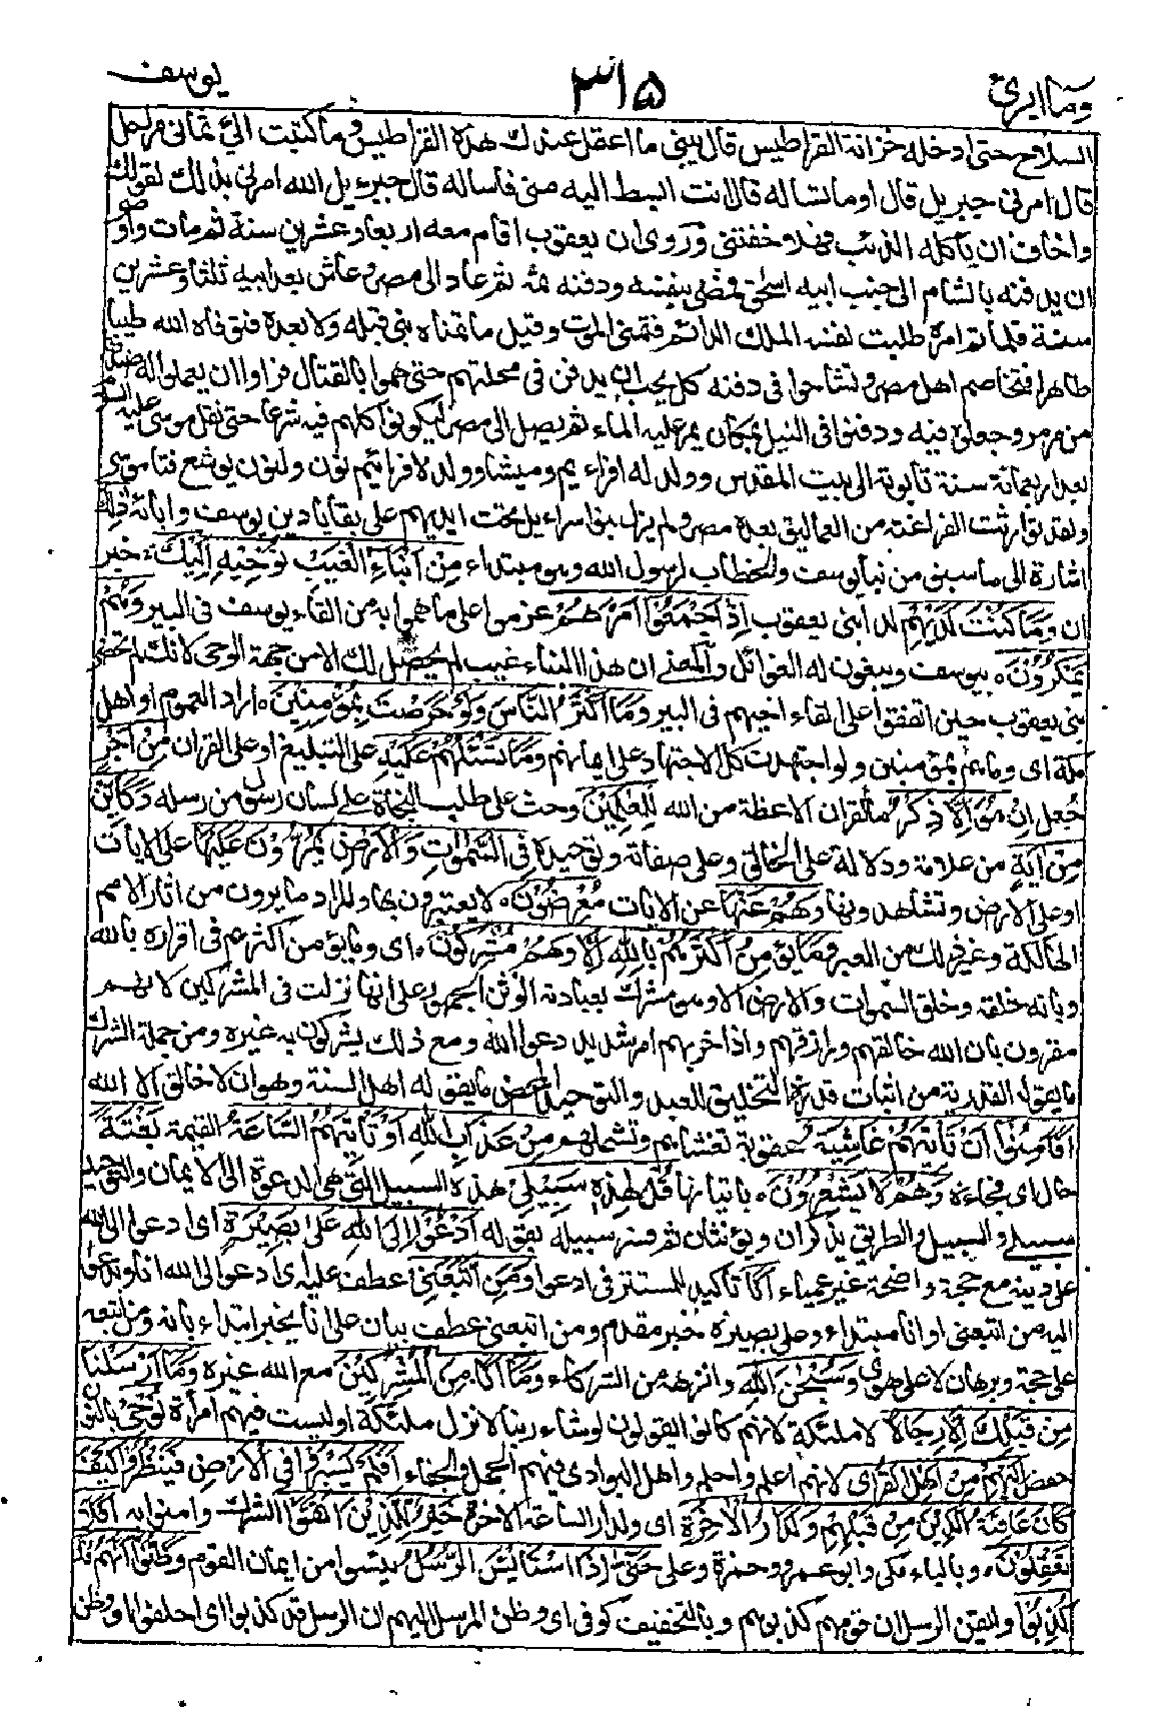 وما ابرئ ٣١٥ يوسف
السلاح حتى ادخله خزانة القراطيس قال يبنى ما اعقل عندك هذه القراطيس وما كتبت الىّ على ثمانى مراحل
قال امرنى جبريل قال او ما تساله قال انت ابسط اليه منى فاساله قال جبرءيل الله امرنى بذلك لقولك
واخاف ان ياكله الذئب فهلا خفتنى وروى ان يعقوب اقام معه اربعا وعشرين سنة ثم مات واوصى
ان يدفنه بالشام الى جنب ابيه اسحق فمضى بنفسه ودفنه ثمه ثم عاد الى مصر وعاش بعد ابيه ثلثا وعشرين
سنة فلما تم امره طلبت نفسه الملك الدائم فتمنى الموت وقيل ما تمناه نبى قبله ولا بعده فتوفاه الله طيبا
طاهرا فتخاصم اهل مصر وتشاحوا فى دفنه كل يحب ان يدفن فى محلتهم حتى هموا بالقتال فراوا ان يعملوا له صندوقا
من مرمر وجعلوه فيه ودفنوه فى النيل بمكان يمر عليه الماء ثم يصل الى مصر ليكونوا كلهم فيه شرعا حتى نقل موسى عليه السلام
بعد اربعمائة سنة تابوته الى بيت المقدس وولد له افراءيم وميشا وولد لافراءيم نون ولنون يوشع فتا موسى
ولقد توارثت الفراعنة من العماليق بعده مصر ولم يزل بنو اسراءيل تحت ايديهم على بقايا دين يوسف وابائه ذلك
اشارة الى ما سبق من نبأ يوسف والخطاب لرسول الله وهو مبتداء مِنْ اَنْبَاءِ الْغَيْبِ نُوْحِيْهِ اِلَيْكَ خبر
ان وَمَا كُنْتَ لَدَيْهِمْ لدا بنى يعقوب اِذْ اَجْمَعُوْا اَمْرَهُمْ عزموا على ما هموا به من القاء يوسف فى البير وَهُمْ
يَمْكُرُوْنَ بيوسف ويبغون له الغوائل والمعنى ان هذا النباء غيب لم يحصل لك الا من جهة الوحى لانك لم تحضر
بنى يعقوب حين اتفقوا على القاء اخيهم فى البير وَمَا اَكْثَرُ النَّاسِ وَلَوْ حَرَصْتَ بِمُؤْمِنِيْنَ اراد العموم او اهل
مكة اى وما هم بمؤمنين ولو اجتهدت كل الاجتهاد على ايمانهم وَمَا تَسْئَلُهُمْ عَلَيْهِ على التبليغ او على القران مِنْ اَجْرٍ
جُعل اِنْ هُوَ اِلَّا ذِكْرٌ ما القران الا عظة من الله لِّلْعٰلَمِيْنَ وحث على طلب النجاة على لسان رسول من رسله وَكَاَيِّنْ
مِّنْ اٰيَةٍ من علامة ودلالة على الخالق وعلى صفاته وتوحيده فِى السَّمٰوٰتِ وَالْاَرْضِ يَمُرُّوْنَ عَلَيْهَا على الايات
او على الارض وتشاهدونها وَهُمْ عَنْهَا عن الايات مُعْرِضُوْنَ لا يعتبرون بها والمراد ما يرون من اثار الامم
الهالكة وغير ذلك من العبر وَمَا يُؤْمِنُ اَكْثَرُهُمْ بِاللّٰهِ اِلَّا وَهُمْ مُّشْرِكُوْنَ اى وما يؤمن اكثرهم فى اقراره بالله
وبانه خلقه وخلق السموات والارض الا وهو مشرك بعبادته الوثن الجمهور على انها نزلت فى المشركين لانهم
مقرون بان الله خالقهم ورازقهم واذا حزبهم امر شديد دعوا الله ومع ذلك يشركون به غيره ومن جملة الشرك
ما يقوله القدرية من اثبات قدرة التخليق للعبد والتوحيد المحض ما يقوله اهل السنة وهو ان لا خالق الا الله
اَفَاَمِنُوْا اَنْ تَاْتِيَهُمْ غَاشِيَةٌ عقوبة تغشاهم وتشملهم مِّنْ عَذَابِ اللّٰهِ اَوْ تَاْتِيَهُمُ السَّاعَةُ القيمة بَغْتَةً
حال اى فجاءة وَّهُمْ لَا يَشْعُرُوْنَ باتيانها قُلْ هٰذِهٖ سَبِيْلِىْ هذه السبيل التى هى الدعوة الى الايمان والتوحيد
سبيلى والسبيل والطريق يذكران ويؤنثان ثم فسر سبيله بقوله اَدْعُوْا اِلَى اللّٰهِ عَلٰى بَصِيْرَةٍ اى ادعوا الى الله
على دينه مع حجة واضحة غير عمياء اَنَا تاكيد للمستتر فى ادعوا وَمَنِ اتَّبَعَنِىْ عطف عليه اى ادعوا الى الله انا ويدعوا
اليه من اتبعنى او انا مبتداء وعلى بصيرة خبر مقدم ومن اتبعنى عطف بيان على انا يخبر ابتداء بانه ومن اتبعه
على حجة وبرهان لا على هوى وَسُبْحٰنَ اللّٰهِ وانزهه من الشركاء وَمَا اَنَا مِنَ الْمُشْرِكِيْنَ مع الله غيره وَمَا اَرْسَلْنَا
مِنْ قَبْلِكَ اِلَّا رِجَالًا لا ملئكة لانهم كانوا يقولون لو شاء ربنا لانزل ملئكة او ليست فيهم امرأة نُّوْحِىْ بالنون
حفص اِلَيْهِمْ مِّنْ اَهْلِ الْقُرٰى لانهم اعلم واحلم واهل البوادى فيهم الجهل والجفاء اَفَلَمْ يَسِيْرُوْا فِى الْاَرْضِ فَيَنْظُرُوْا كَيْفَ
كَانَ عَاقِبَةُ الَّذِيْنَ مِنْ قَبْلِهِمْ وَلَدَارُ الْاٰخِرَةِ اى ولدار الساعة الاخرة خَيْرٌ لِّلَّذِيْنَ اتَّقَوْا الشرك وامنوا به اَفَلَا
تَعْقِلُوْنَ وبالياء مكى وابو عمرو وحمزة وعلى حَتّٰى اِذَا اسْتَايْئَسَ الرُّسُلُ يئسوا من ايمان القوم وَظَنُّوْا اَنَّهُمْ قَدْ
كُذِبُوْا وايقن الرسل ان قومهم كذبوهم وبالتخفيف كوفى اى وظن المرسل اليهم ان الرسل قد كذبوا اى اخلفوا او وظن